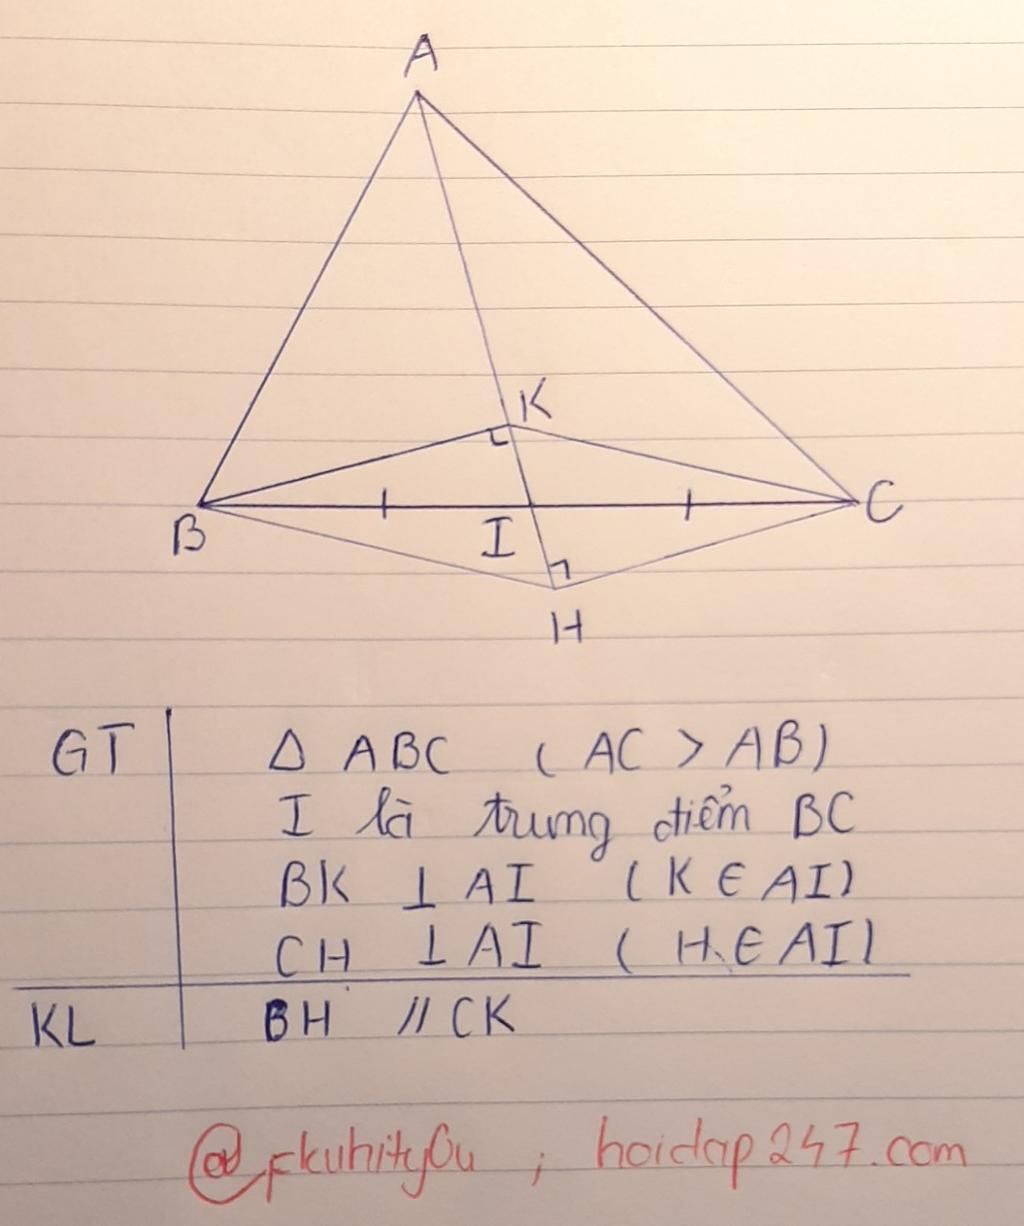 A
K
B
I
C
H
GT Δ ABC ( AC > AB )
I là trung điểm BC
BK ⊥ AI ( K ∈ AI )
CH ⊥ AI ( H ∈ AI )
KL BH // CK
@fkuhity0u ; hoidap247.com